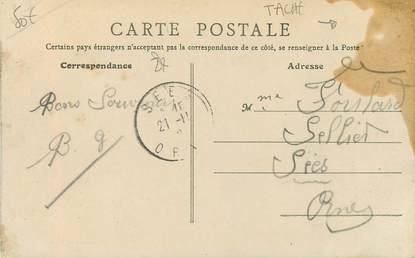 TACHÉ
CARTE POSTALE
Certains pays étrangers n'acceptant pas la correspondance de ce côté, se renseigner à la Poste
Correspondance
Adresse
Bons Souvenirs
B. G
Mme
Sellier
Sées
Orne